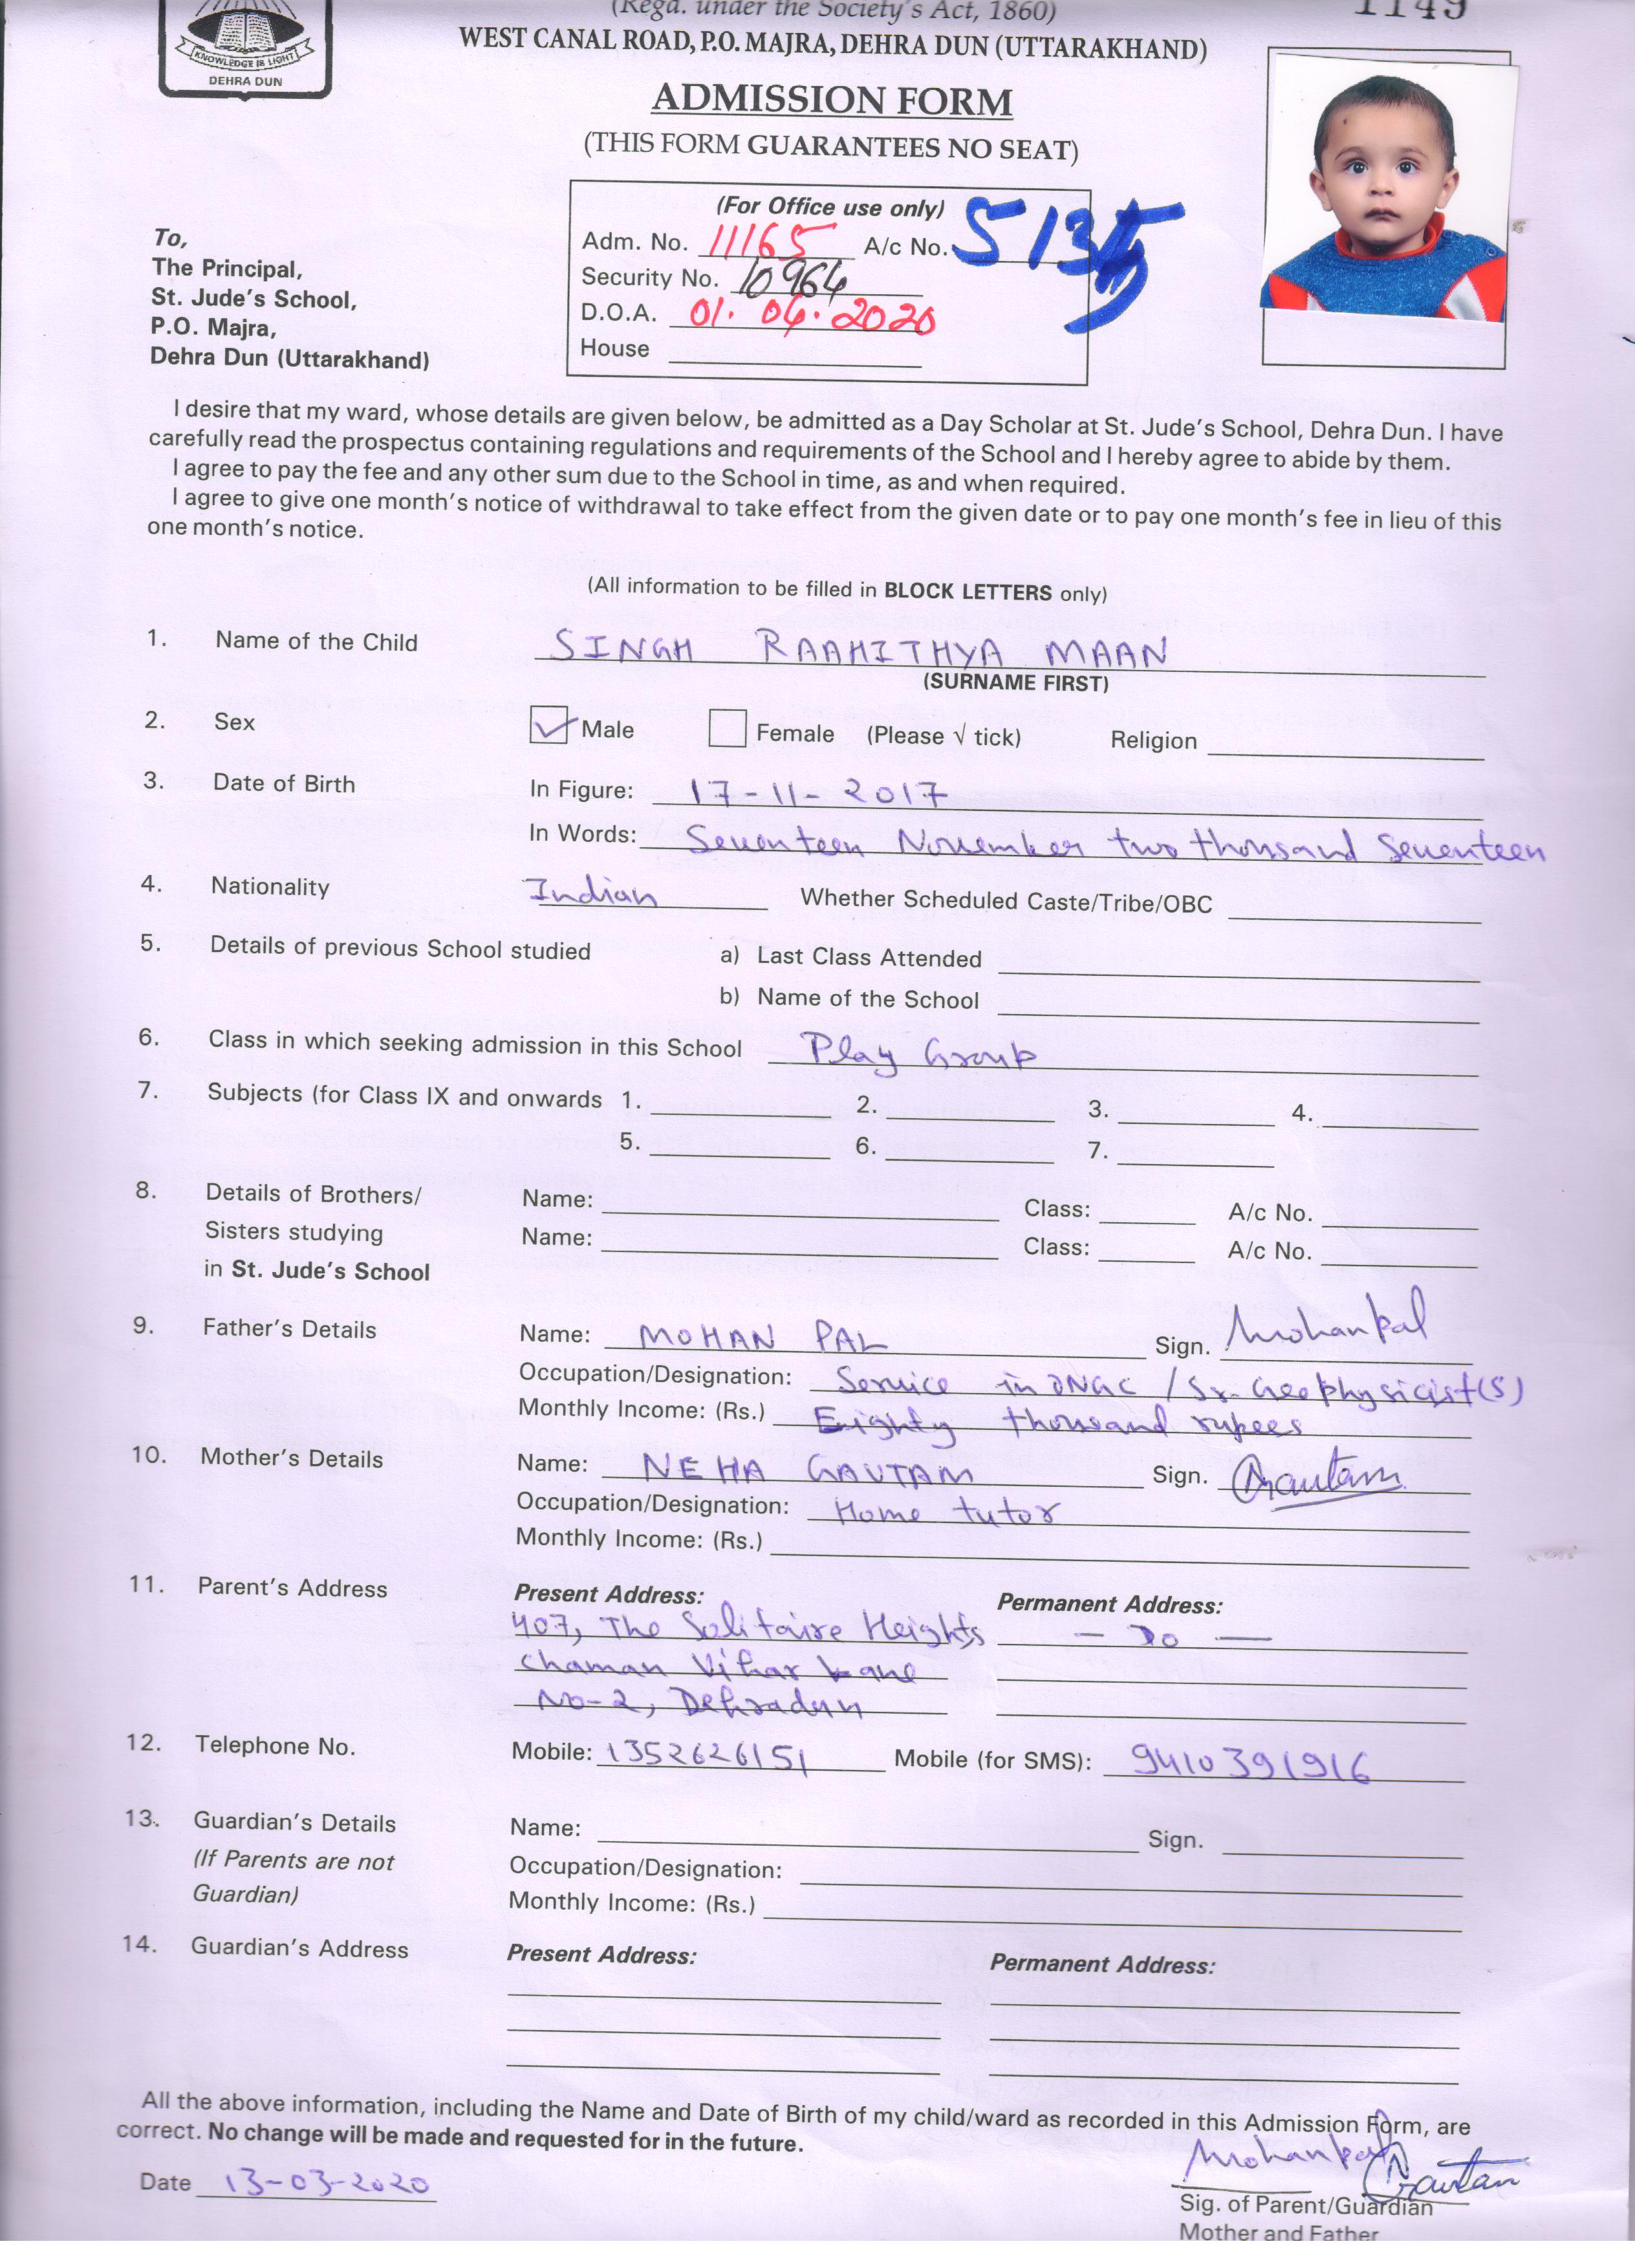 (Regd. under the Society's Act, 1860)
1149
WEST CANAL ROAD, P.O. MAJRA, DEHRA DUN (UTTARAKHAND)
KNOWLEDGE IS LIGHT
DEHRA DUN
ADMISSION FORM
(THIS FORM GUARANTEES NO SEAT)
(For Office use only)
Adm. No. 11165 A/c No. 5135
Security No. 10964
D.O.A. 01.04.2020
House
To,
The Principal,
St. Jude's School,
P.O. Majra,
Dehra Dun (Uttarakhand)
I desire that my ward, whose details are given below, be admitted as a Day Scholar at St. Jude's School, Dehra Dun. I have
carefully read the prospectus containing regulations and requirements of the School and I hereby agree to abide by them.
I agree to pay the fee and any other sum due to the School in time, as and when required.
I agree to give one month's notice of withdrawal to take effect from the given date or to pay one month's fee in lieu of this
one month's notice.
(All information to be filled in BLOCK LETTERS only)
1. Name of the Child SINGH RAAHITHYA MAAN
(SURNAME FIRST)
2. Sex Male Female (Please √ tick) Religion
3. Date of Birth In Figure: 17-11-2017
In Words: Seventeen November two thousand seventeen
4. Nationality Indian Whether Scheduled Caste/Tribe/OBC
5. Details of previous School studied a) Last Class Attended
b) Name of the School
6. Class in which seeking admission in this School Play Group
7. Subjects (for Class IX and onwards 1. 2. 3. 4.
5. 6. 7.
8. Details of Brothers/ Name: Class: A/c No.
Sisters studying Name: Class: A/c No.
in St. Jude's School
9. Father's Details Name: MOHAN PAL Sign. Mohanpal
Occupation/Designation: Service in ONGC / Sr. Geophysicist(S)
Monthly Income: (Rs.) Eighty thousand rupees
10. Mother's Details Name: NEHA GAUTAM Sign. Gautam
Occupation/Designation: Home tutor
Monthly Income: (Rs.)
11. Parent's Address Present Address: Permanent Address:
407, The Solitaire Heights — Do —
Chaman Vihar Lane
No-2, Dehradun
12. Telephone No. Mobile: 1352626151 Mobile (for SMS): 9410391916
13. Guardian's Details Name: Sign.
(If Parents are not Occupation/Designation:
Guardian) Monthly Income: (Rs.)
14. Guardian's Address Present Address: Permanent Address:
All the above information, including the Name and Date of Birth of my child/ward as recorded in this Admission Form, are
correct. No change will be made and requested for in the future.
Mohanpal Gautam
Date 13-03-2020
Sig. of Parent/Guardian
Mother and Father